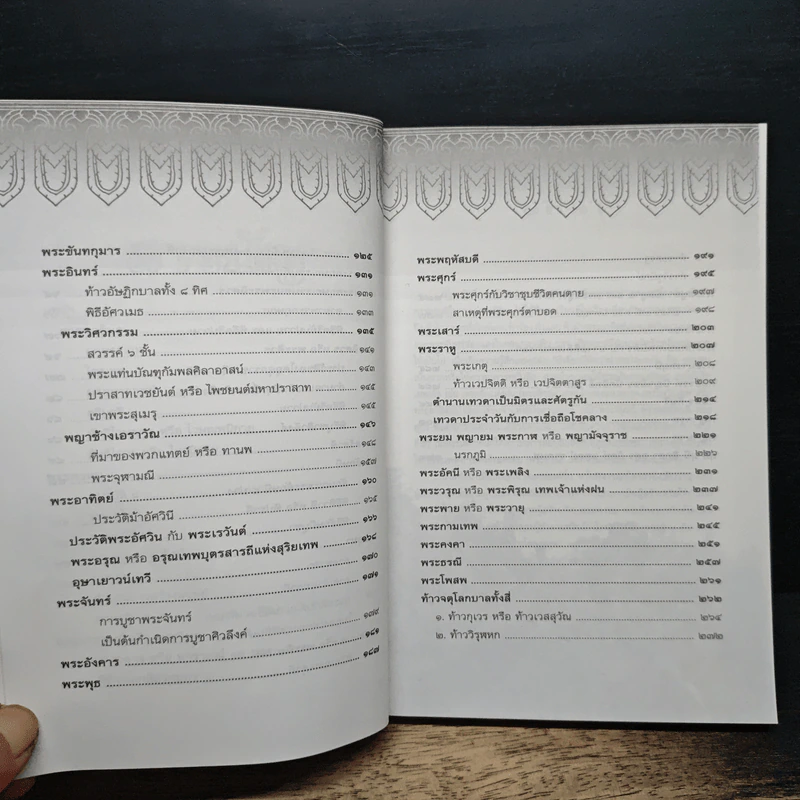 พระขันทกุมาร ๑๒๕
พระอินทร์ ๑๓๑
ท้าวอัษฏิกบาลทั้ง ๘ ทิศ ๑๓๑
พิธีอัศวเมธ ๑๓๓
พระวิศวกรรม ๑๓๕
สวรรค์ ๖ ชั้น ๑๔๑
พระแท่นบัณฑุกัมพลศิลาอาสน์ ๑๔๓
ปราสาทเวชยันต์ หรือ ไพชยนต์มหาปราสาท ๑๔๕
เขาพระสุเมรุ ๑๔๕
พญาช้างเอราวัณ ๑๔๖
ที่มาของพวกแทตย์ หรือ ทานพ ๑๔๘
พระจุฬามณี ๑๕๗
พระอาทิตย์ ๑๖๐
ประวัติม้าอัศวินี ๑๖๔
ประวัติพระอัศวิน กับ พระเรวันต์ ๑๖๖
พระอรุณ หรือ อรุณเทพบุตรสารถีแห่งสุริยเทพ ๑๖๘
อุษาเยาวน์เทวี ๑๗๐
พระจันทร์ ๑๗๑
การบูชาพระจันทร์
เป็นต้นกำเนิดการบูชาศิวลึงค์ ๑๗๙
พระอังคาร ๑๘๑
พระพุธ ๑๘๗
พระพฤหัสบดี ๑๙๑
พระศุกร์ ๑๙๕
พระศุกร์กับวิชาชุบชีวิตคนตาย ๑๙๗
สาเหตุที่พระศุกร์ตาบอด ๑๙๘
พระเสาร์ ๒๐๓
พระราหู ๒๐๗
พระเกตุ ๒๐๘
ท้าวเวปจิตติ หรือ เวปจิตตาสูร ๒๐๙
ตำนานเทวดาเป็นมิตรและศัตรูกัน ๒๑๔
เทวดาประจำวันกับการเชื่อถือโชคลาง ๒๑๘
พระยม พญายม พระกาฬ หรือ พญามัจจุราช ๒๒๑
นรกภูมิ ๒๒๖
พระอัคนี หรือ พระเพลิง ๒๓๑
พระวรุณ หรือ พระพิรุณ เทพเจ้าแห่งฝน ๒๓๗
พระพาย หรือ พระวายุ ๒๔๑
พระกามเทพ ๒๔๕
พระคงคา ๒๕๑
พระธรณี ๒๕๗
พระโพสพ ๒๖๑
ท้าวจตุโลกบาลทั้งสี่ ๒๖๒
๑. ท้าวกุเวร หรือ ท้าวเวสสุวัณ ๒๖๔
๒. ท้าววิรุฬหก ๒๗๒